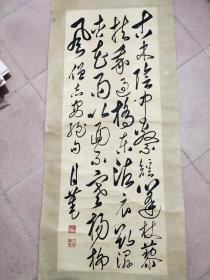 古木陰中繫短篷杖藜
扶我過橋東沾衣欲濕
杏花雨吹面不寒楊柳
風 僧志安絶句